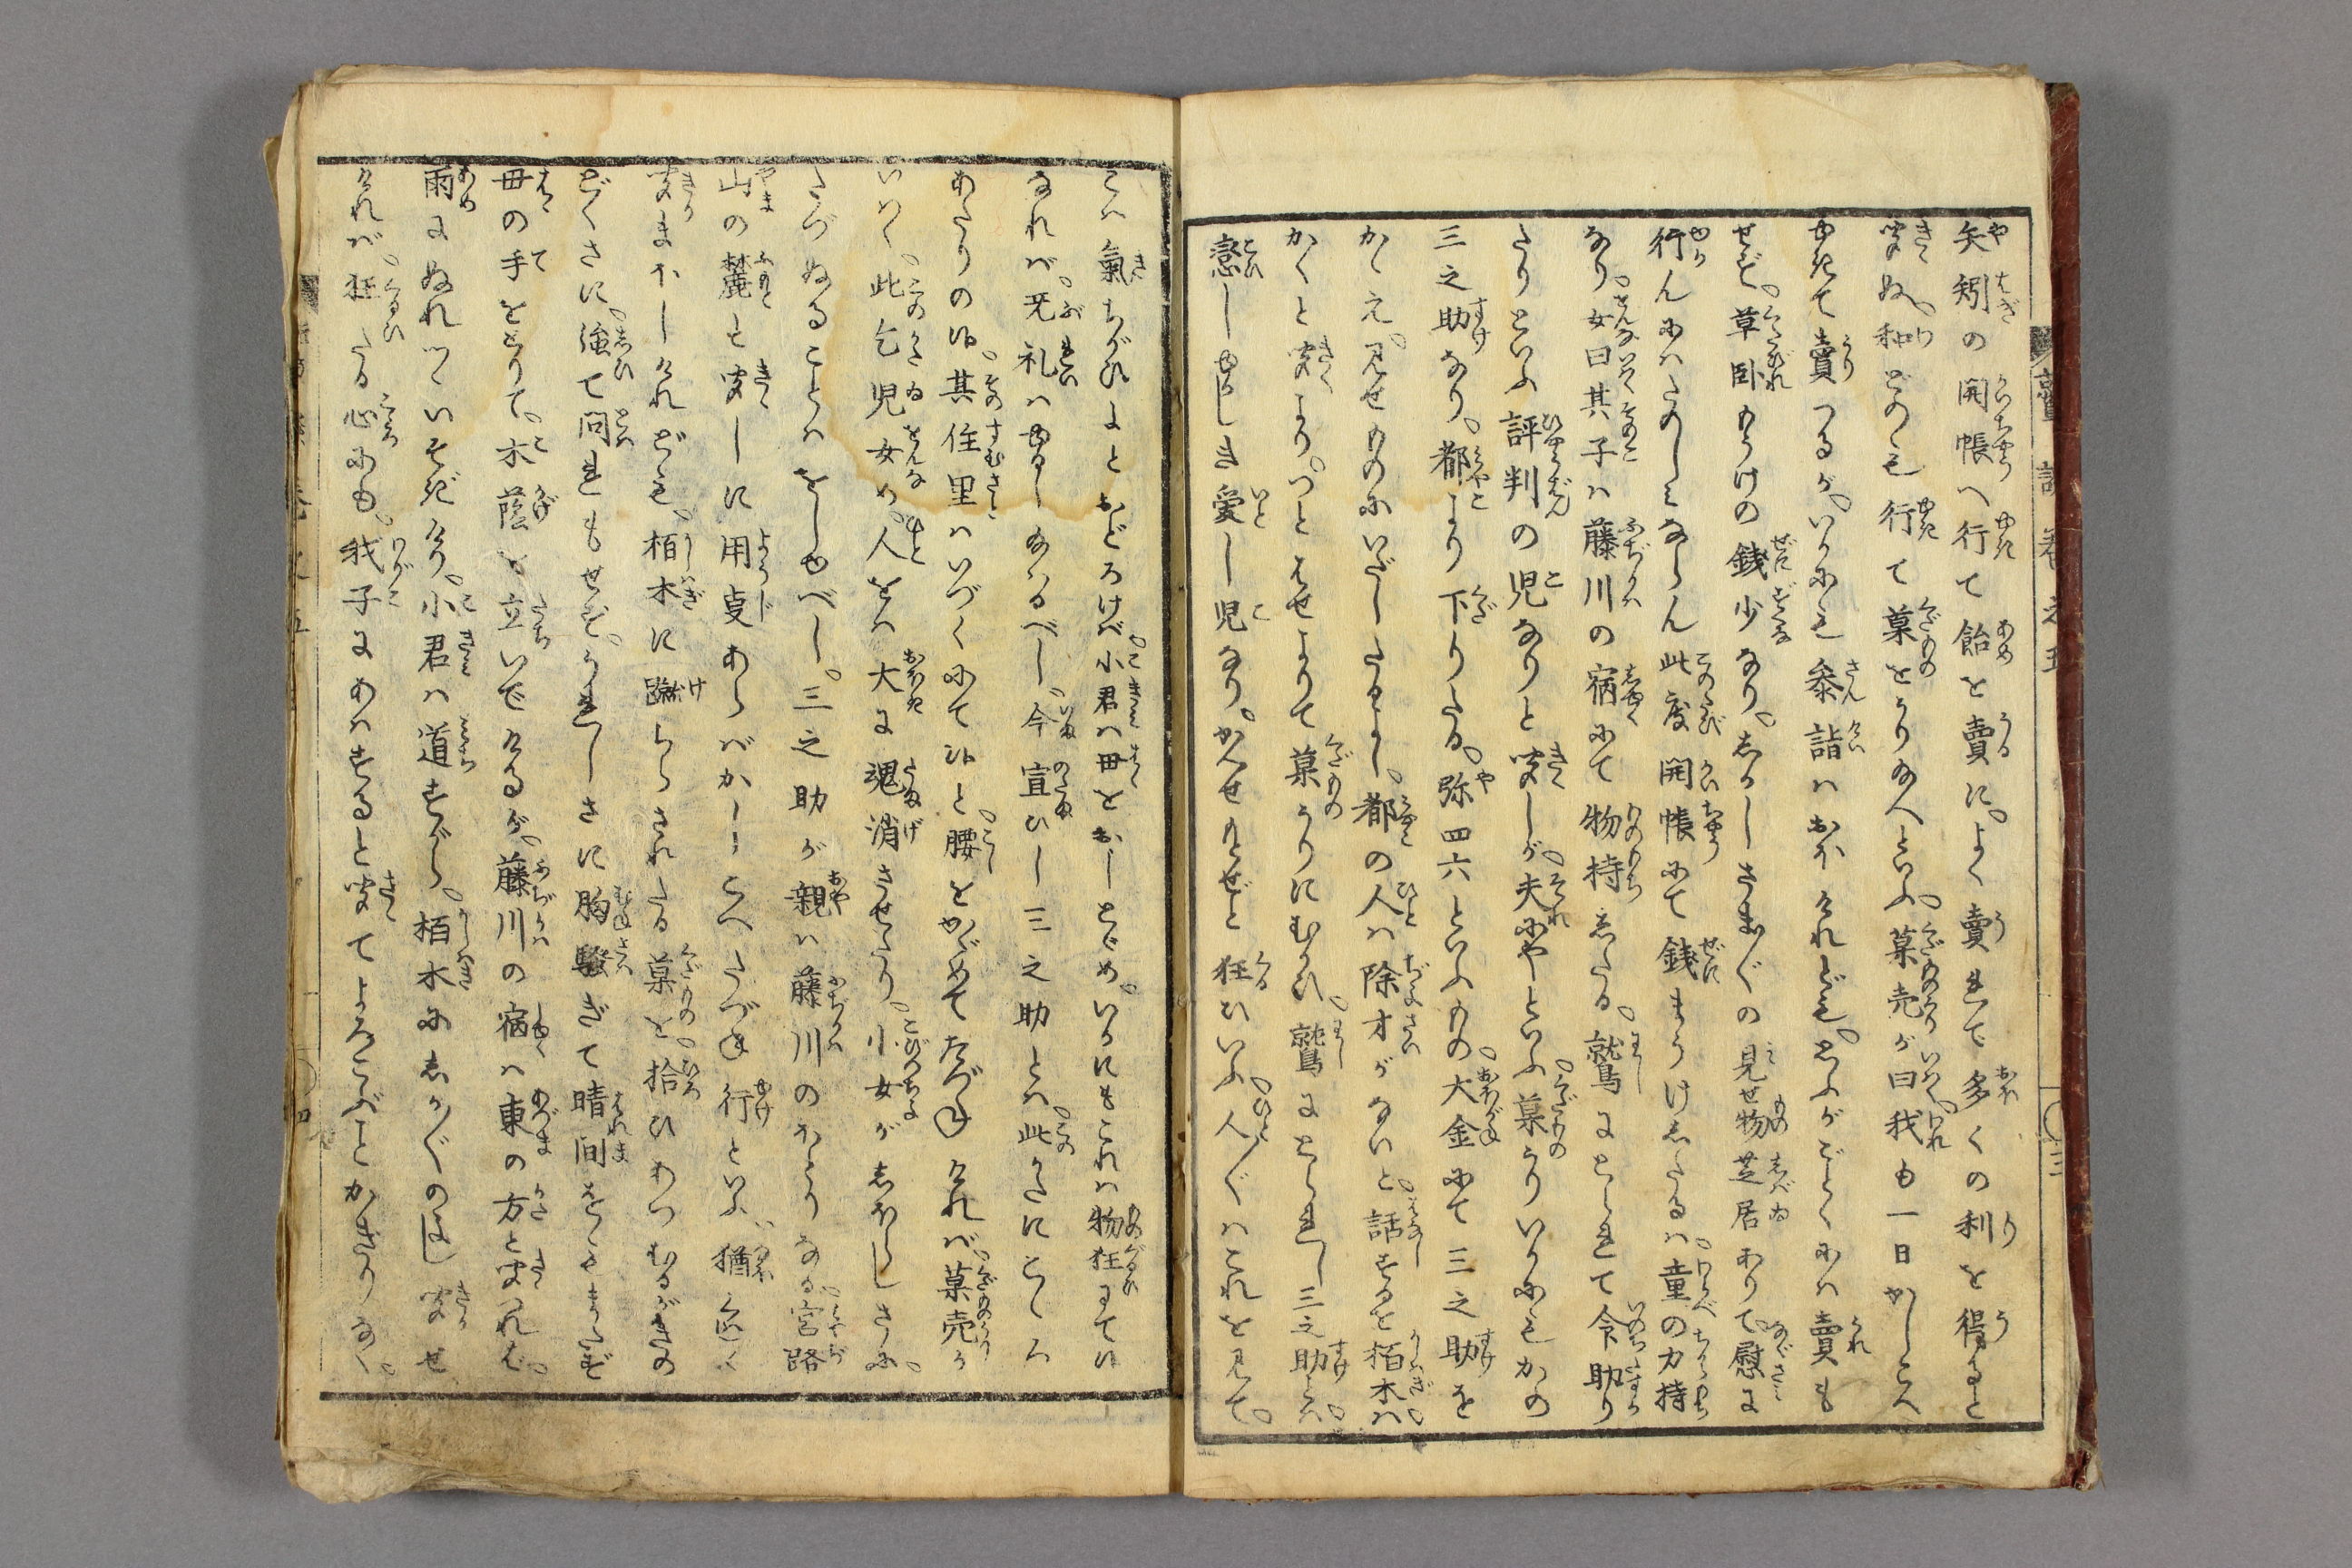 矢矧の開帳へ行て飴を賣に。よく賣れて多くの利を得ると
聞ぬ。和どのも行て菓をうり給へといふ。菓売が曰我も一日かしこへ
ゆきて賣つるが。いかにも参詣はおほけれども。思ふがごとくには賣も
せず。草臥もうけの銭少なり。しかしさま〴〵の見せ物芝居ありて慰に
行んにはたのしみならん此度開帳にて銭まうけしたるは。童の力持
なり。女曰其子は藤川の宿にて物持したる。鷲にとられて命助り
たりといふ評判の児なりと聞しが。夫にやといふ。菓うりいかにもかの
三之助なり。都より下りたる。弥四六といふもの。大金にて三之助を
かゝえ。見せものにいだしたるよし。都の人は除才がないと。話すを栢木は。
かくと聞より。つとはせよりて菓うりにむかひ。鷲にとられし三之助とは。
戀しゆかしき愛し児なり。かへせもどせと狂ひいふ。人〴〵はこれを見て。
こは氣ちがひよとおどろけば。小君は母をおしとゞめ。いかにもこれは物狂にて候
なれば。无礼はゆるし給はるべし。今宣ひし三之助とは。此かたにこゝろ
あたりの候。其住里はいづくにて候と。腰をかゞめてたづねければ。菓売が
いはく。此乞児女め。人をは大に魂消させたり。小女がしほらしさに。
たづぬることはをしゆべし。三之助が親は藤川のほとりなる。宮路
山の麓と聞しに用事あらばかしこへたづね行といふ。猶委く
聞まほしけれども。栢木に蹴ちらされたる菓を。拾ひあつむるがきの
どくさに。強て問れもせず。うれしさに胸騒ぎて晴間をもまたず
母の手をとりて。木蔭を立いでけるが。藤川の宿は東の方と聞ければ。
雨にぬれつゝいそぎけり。小君は道すがら。栢木にしか〴〵のよし聞せ
ければ。狂たる心にも。我子にあはすると聞てよろこぶことかぎりなく。